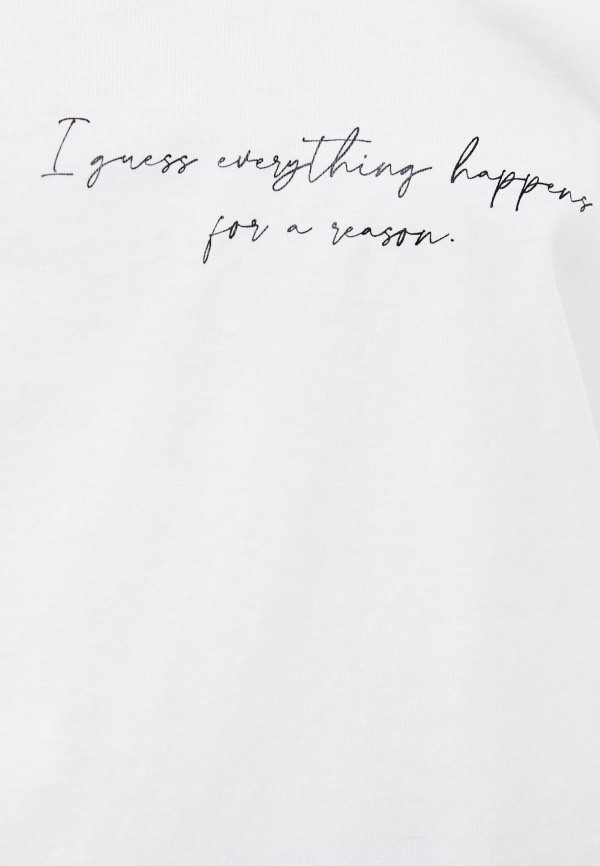 I guess everything happens
for a reason.